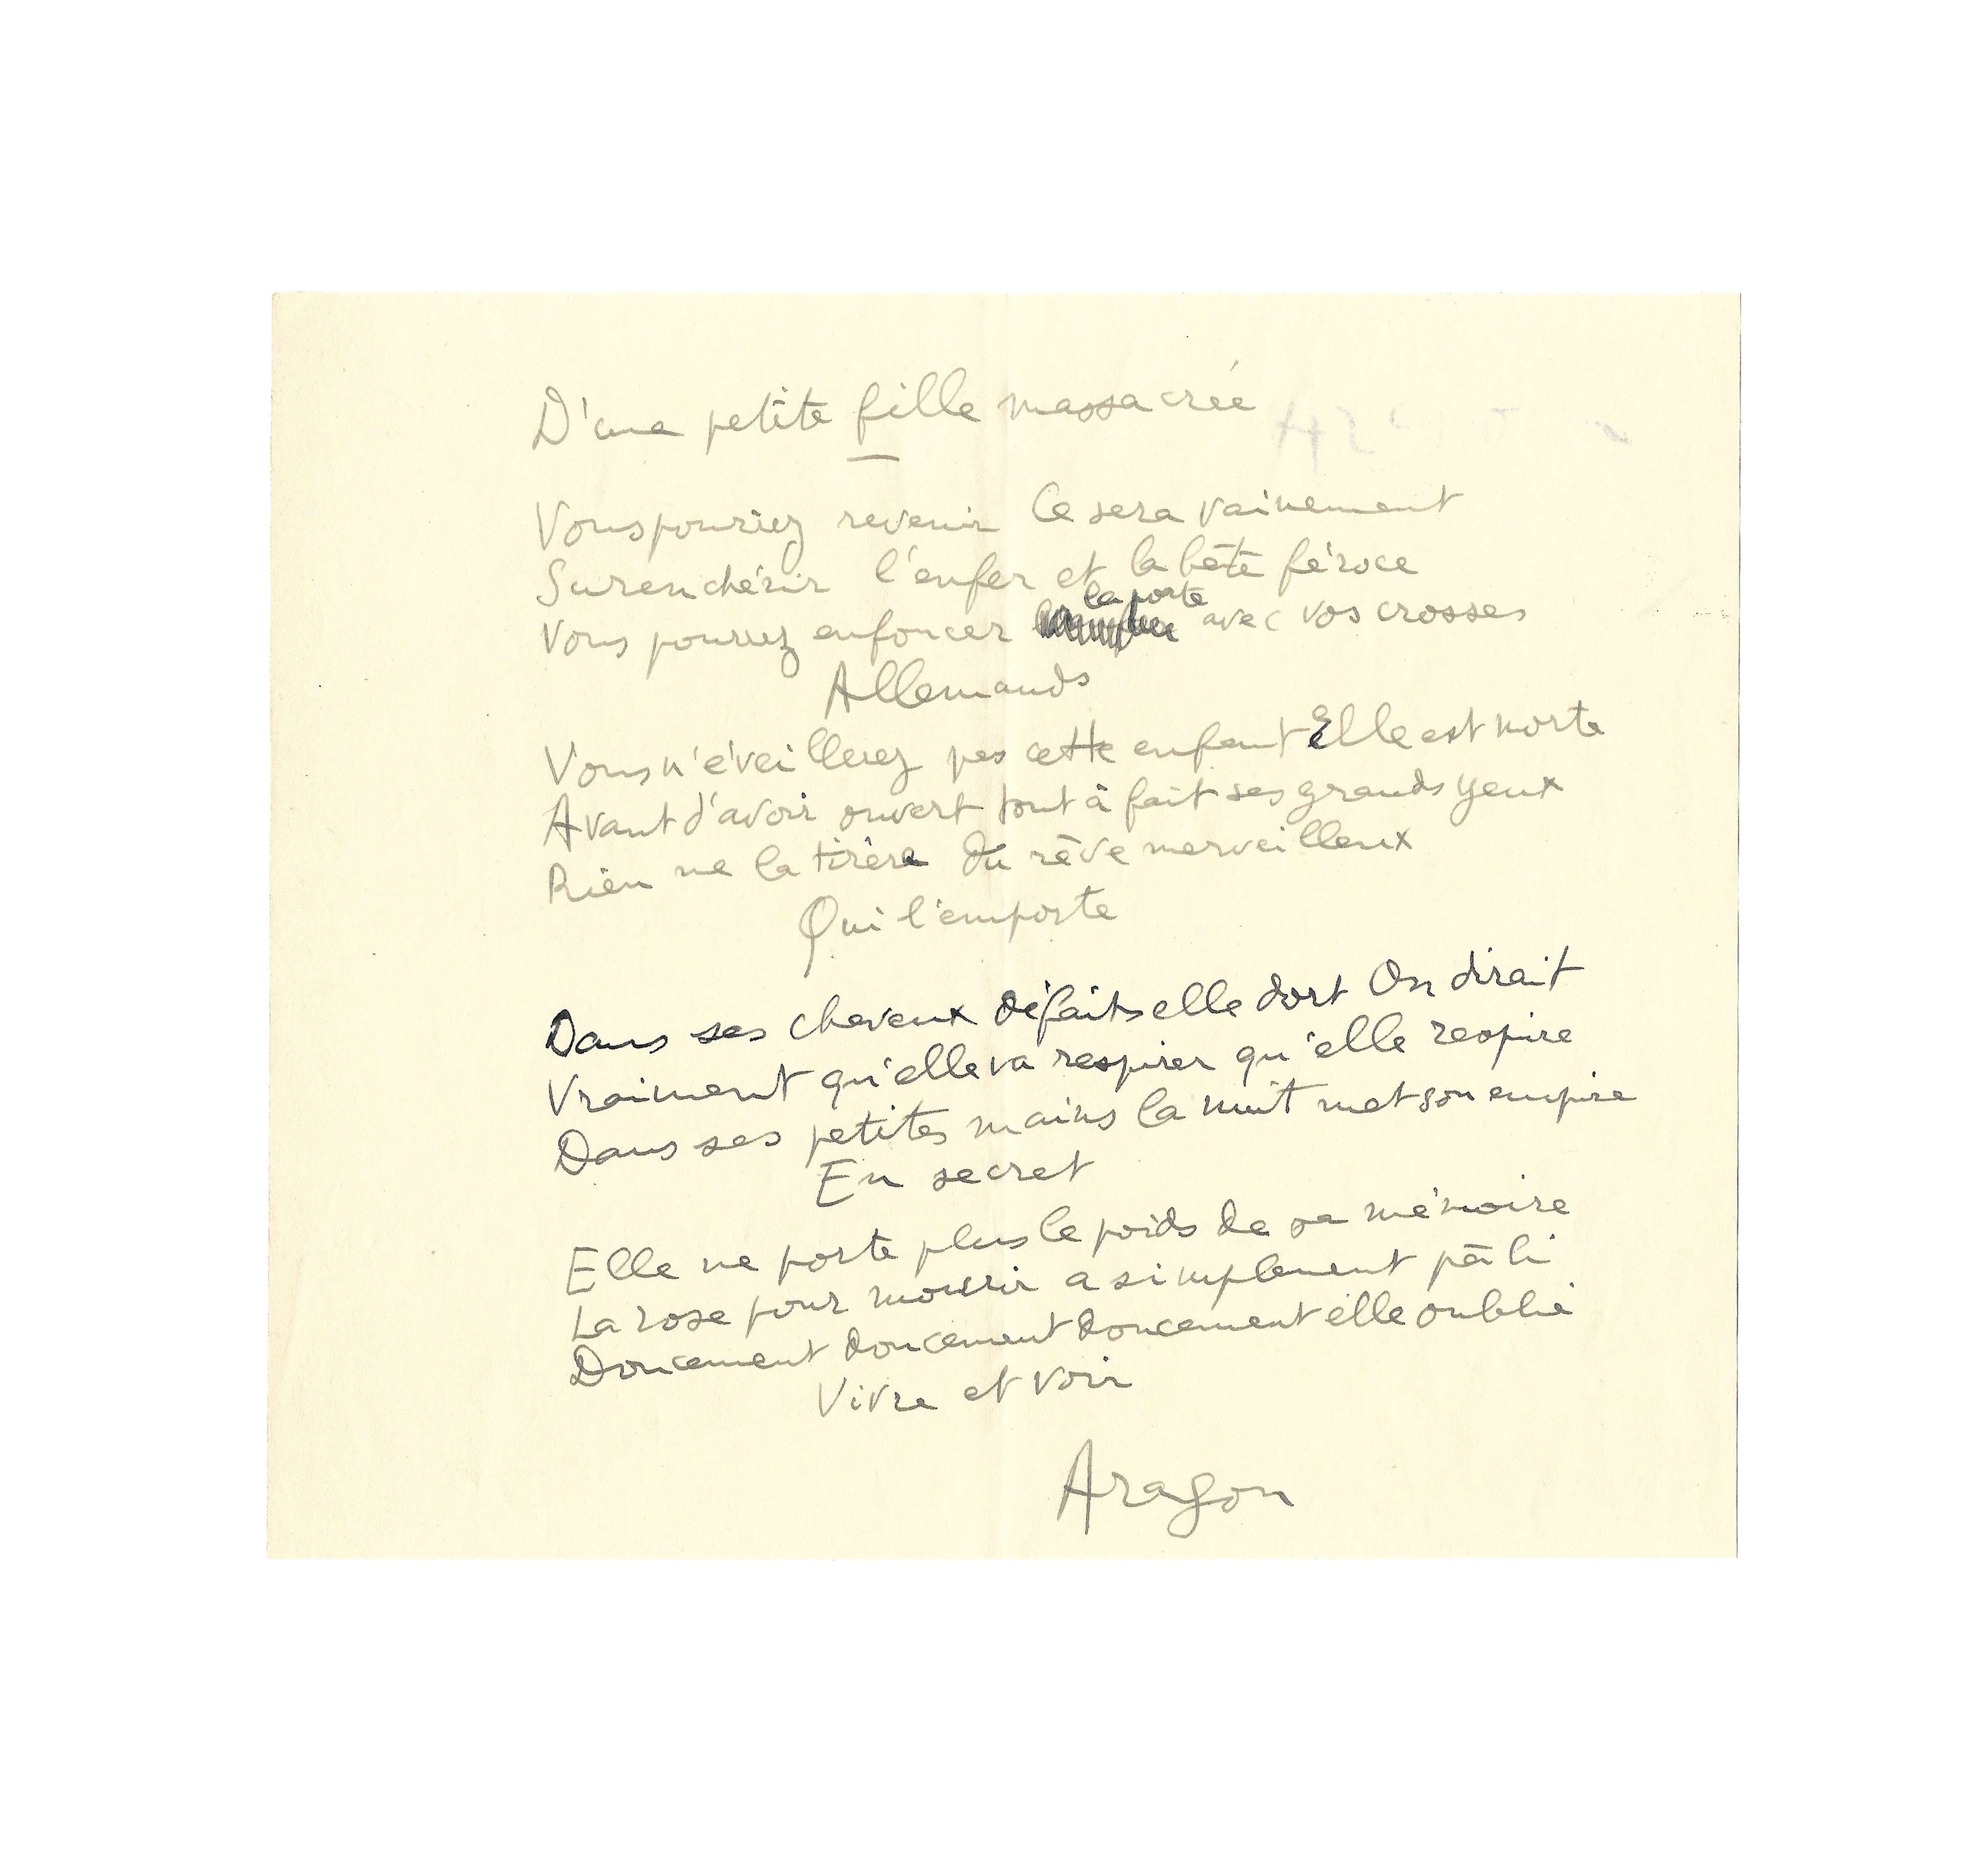 D'une petite fille massacrée
Vous pouriez revenir Ce sera vainement
Surenchérir l'enfer et la bête féroce
la porte
Vous pourrez enfoncer avec vos crosses
Allemands
Vous n'éveillerez pas cette enfant Elle est morte
Avant d'avoir ouvert tout à fait ses grands yeux
Rien ne la tirera du rêve merveilleux
Qui l'emporte
Dans ses cheveux défaits elle dort On dirait
Vraiment qu'elle va respirer qu'elle respire
Dans ses petites mains la nuit met son empire
En secret
Elle ne porte plus le poids de sa mémoire
La rose pour mourir a simplement pâli
Doucement doucement doucement elle oublie
Vivre et voir
Aragon